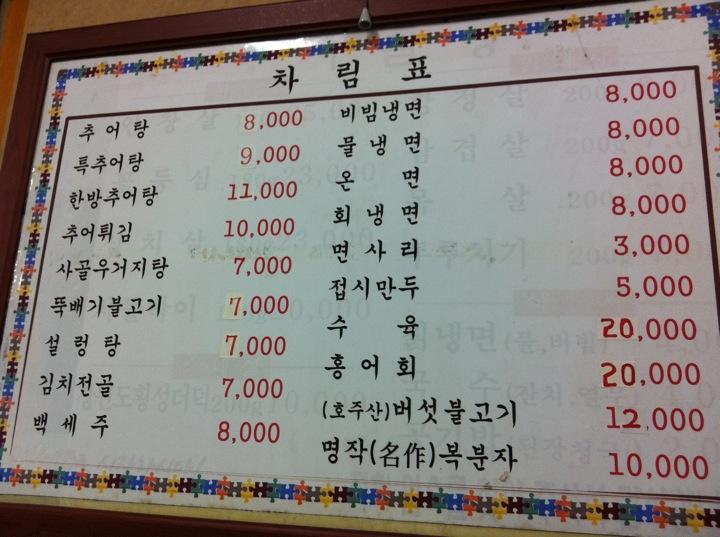 차 림 표
추 어 탕 8,000
특추어탕 9,000
한방추어탕 11,000
추어튀김 10,000
사골우거지탕 7,000
뚝배기불고기 7,000
설 렁 탕 7,000
김치전골 7,000
백 세 주 8,000
비빔냉면 8,000
물 냉 면 8,000
온 면 8,000
회 냉 면 8,000
면 사 리 3,000
접시만두 5,000
수 육 20,000
홍 어 회 20,000
(호주산)버섯불고기 12,000
명작(名作)복분자 10,000